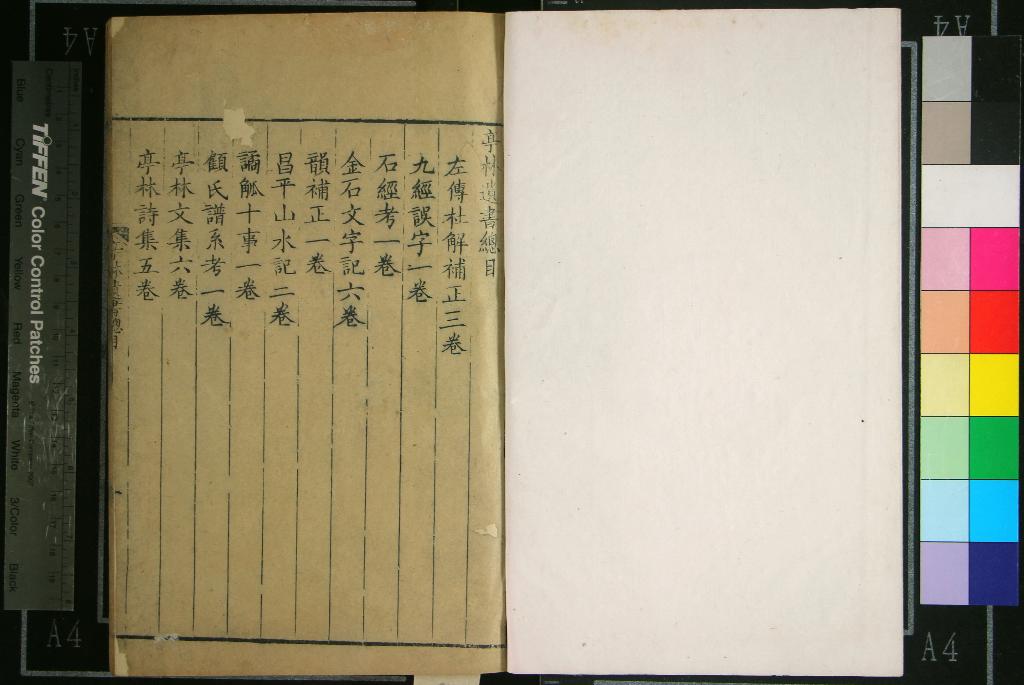 亭林遺書總目
左傳杜解補正三卷
九經誤字一卷
石經考一卷
金石文字記六卷
韻補正一卷
昌平山水記二卷
譎觚十事一卷
顧氏譜系考一卷
亭林文集六卷
亭林詩集五卷
TIFFEN Color Control Patches
Blue Cyan Green Yellow Red Magenta White 3/Color Black
Centimetres Inches
A4
A4
A4
A4